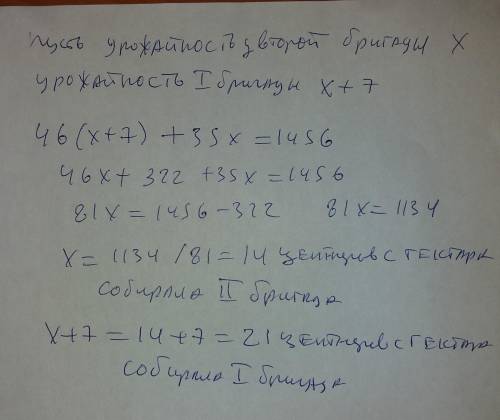 пусть урожайность у второй бригады x
урожайность I бригады x + 7
46(x+7) + 35x = 1456
46x + 322 + 35x = 1456
81x = 1456 - 322 81x = 1134
x = 1134 / 81 = 14 центнеров с гектара
собирала II бригада
x+7 = 14+7 = 21 центнеров с гектара
собирала I бригада